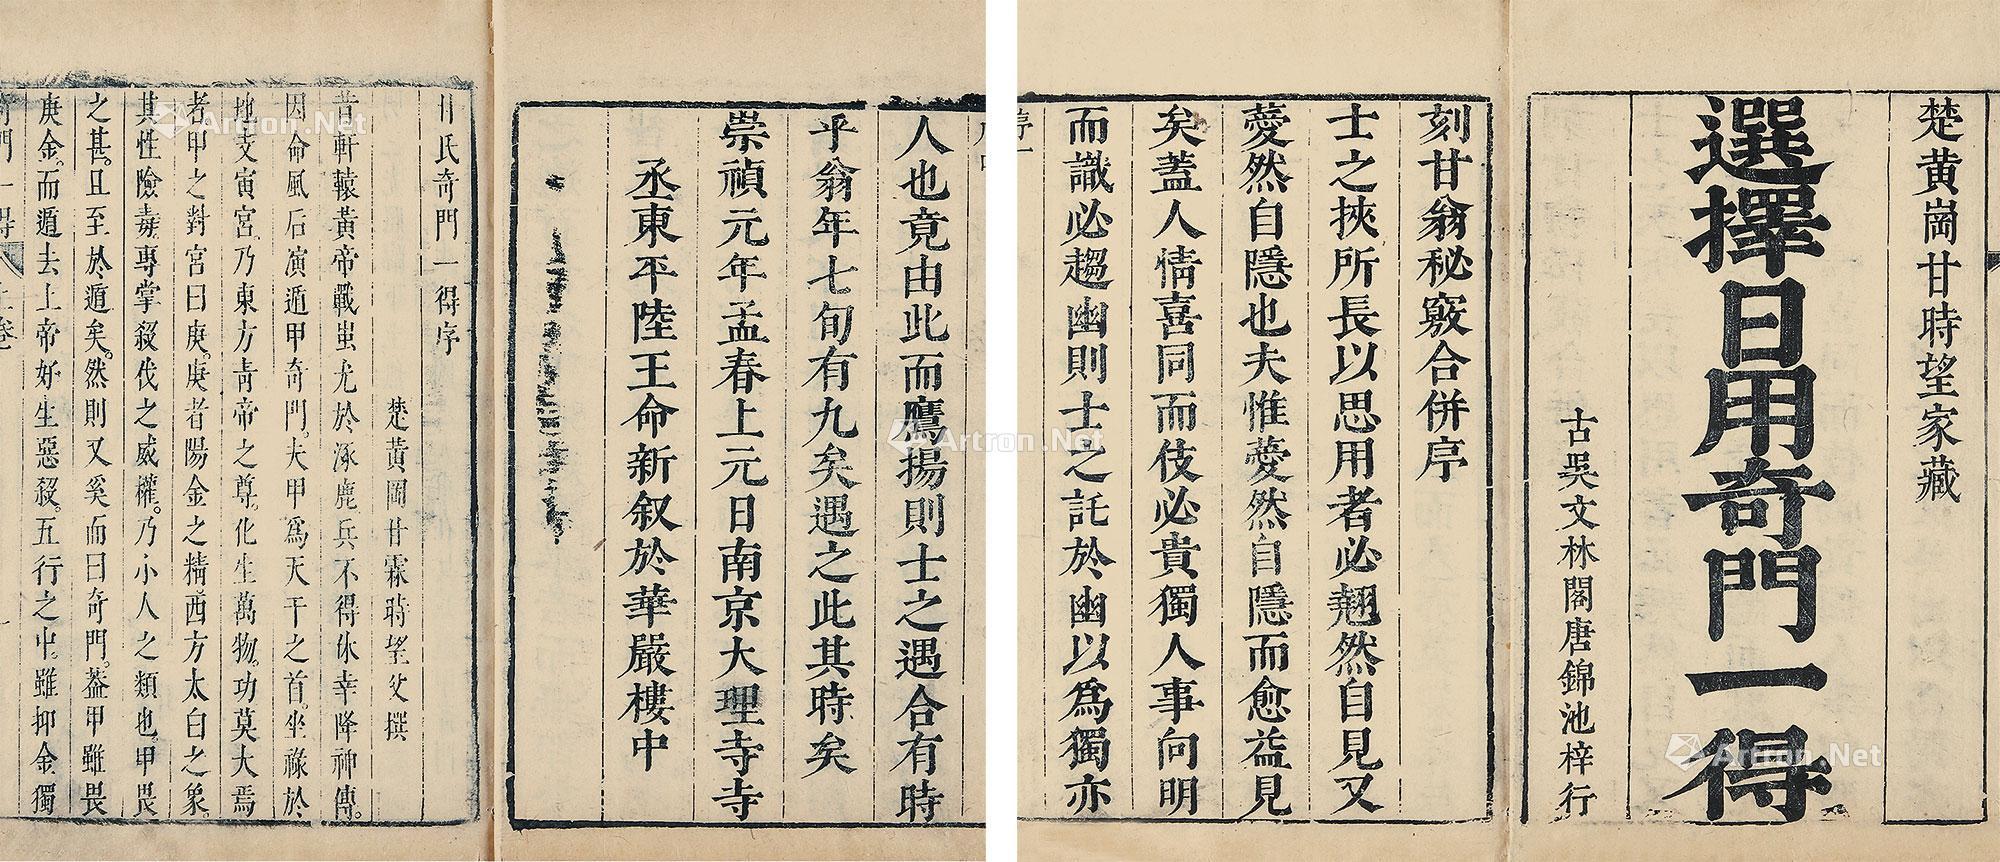 楚黃崗甘時望家藏
選擇日用奇門一得
古吳文林閣唐錦池梓行
刻甘翁秘竅合併序
士之挾所長以思用者必翹然自見又
薆然自隱也夫惟薆然自隱而愈益見
矣蓋人情喜同而伎必貴獨人事向明
而識必趨幽則士之託於幽以爲獨亦
序一
人也竟由此而鷹揚則士之遇合有時
乎翁年七旬有九矣遇之此其時矣
崇禎元年孟春上元日南京大理寺寺
丞東平陸王命新叙於華嚴樓中
甘氏奇門一得序
楚黃岡甘霖時望父撰
昔軒轅黃帝戰蚩尤於涿鹿兵不得休幸降神傳。
因命風后演遁甲奇門。夫甲爲天干之首。坐祿於
地支寅宮。乃東方靑帝之尊。化生萬物。功莫大焉
者。甲之對宮曰庚。庚者陽金之精。酉方太白之象。
其性險毒。專掌殺伐之威權。乃小人之類也。甲畏
之甚。且至於遁矣。然則又奚而曰奇門。蓋甲雖畏
庚金。而遁去。上帝好生惡殺。五行之中。雖抑金獨
奇門一得 上卷
Artron.Net
Artron.Net
Artron.Net